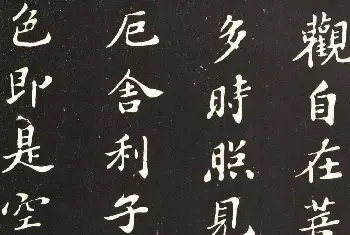 觀自在菩
多時照見
厄舍利子
色即是空